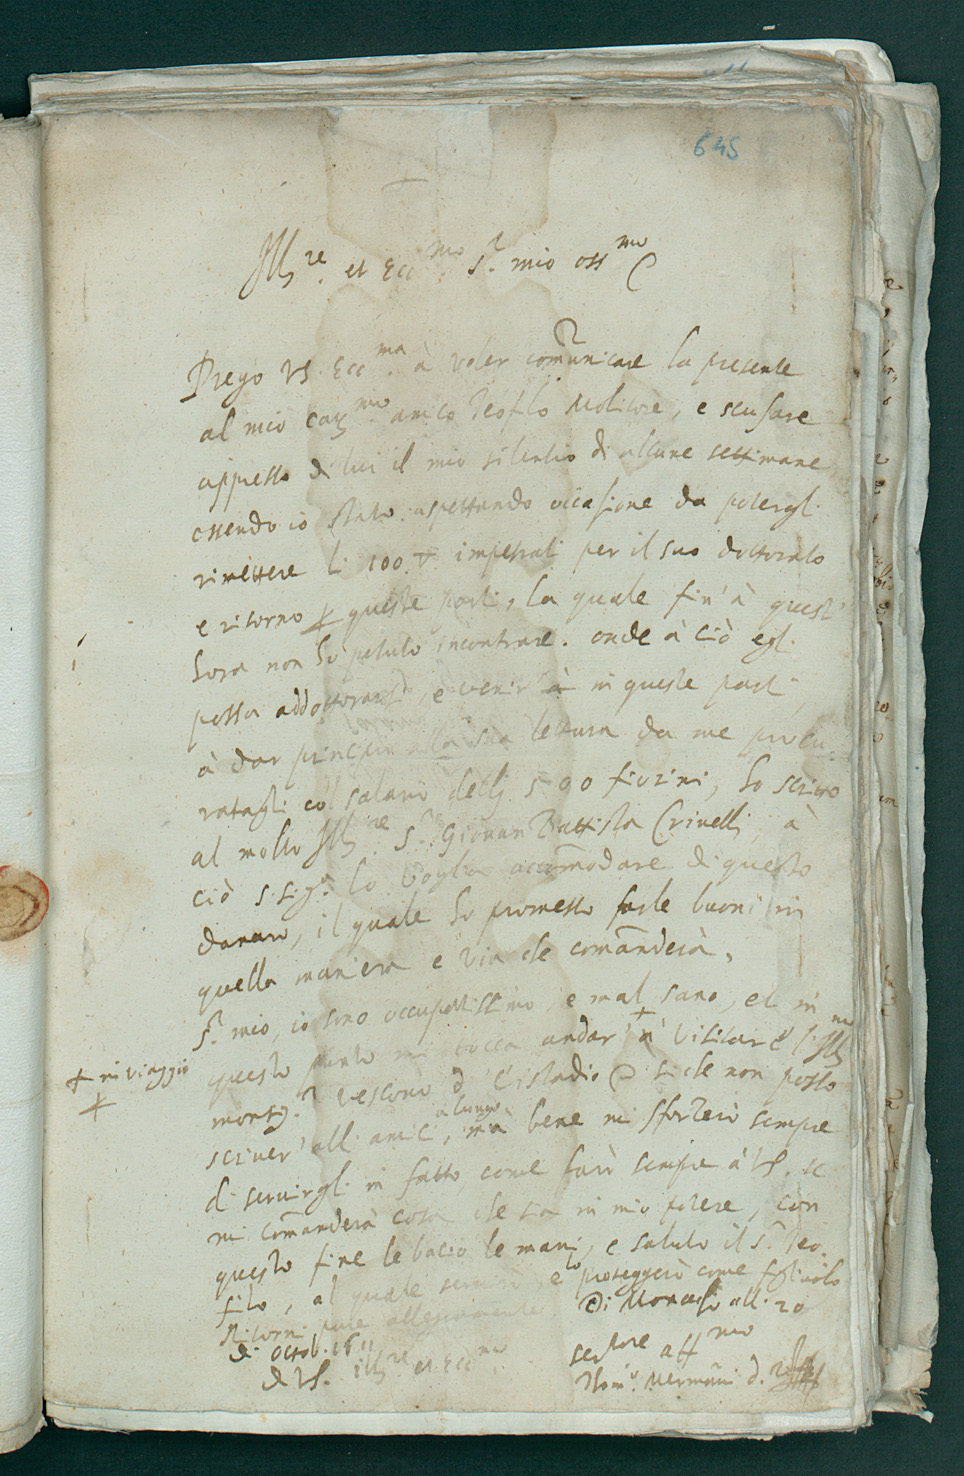 645
Ill.re et Ecc.mo S.r mio oss.mo
Prego VS. Ecc.ma à voler com̃unicare la presente
al mio car.mo amico Teofilo Molitore, e scusare
appresso di lui il mio silentio di alcune settimane,
essendo io stato aspettando occasione da potergli
rimettere li 100 imperiali per il suo dottorato
e ritorno queste parti, la quale fin' à quest'
hora non ho potuto incontrare. onde à ciò egli
possa addottorarsi, e venir in queste parti,
à dar principio alla sua lettura da me procu-
ratagli col salario delli 500 fiorini, ho scritto
al molto Ill.re S.r Giovan Battista Crivelli, à
ciò S.S. lo voglia accom̃odare di questo
danaro, il quale ho promesso farle buoni in
quella maniera e via che com̃anderà.
S.r mio, io sono occupatissimo, e mal sano, et in
questo punto mi tocca andar' + à visitare l' Ill.mo
+ in viaggio
Vescovo d' Eistadio sì che non posso
scriver' alli amici à lungo, ma bene mi sforzerò sempre
di servirgli in fatto, come farò sempre à VS. se
mi com̃anderà cosa che sia in mio potere, con
questo fine le bacio le mani, e saluto il S.r Teo-
filo, al quale servirò, e lo proteggerò come figliuolo
Ritorni pure allegramente. Di Monacho alli 20
di Octob. 1611
di VS. Ill.re et Ecc.ma
ser.tore aff.mo
Mermañi